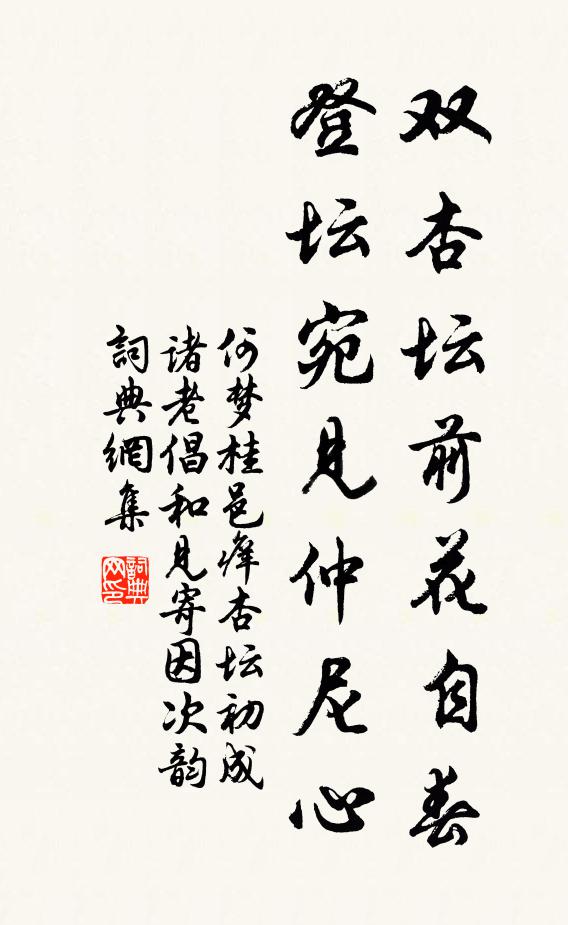 双杏坛前花自春
登坛宛见仲尼心
何梦桂邑庠杏坛初成
诸老倡和见寄因次韵
詞典網集
詞典网印